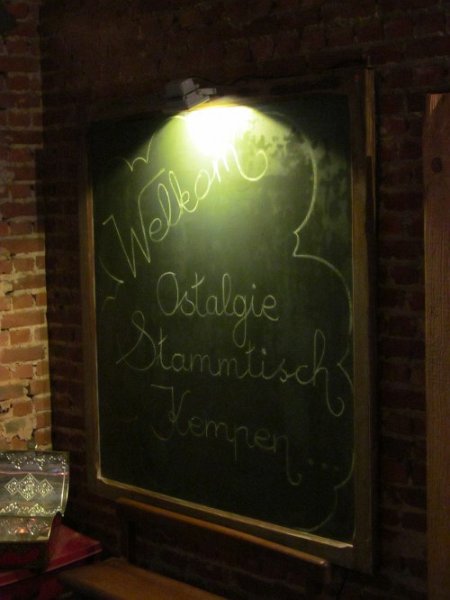 Welkom
Ostalgie
Stammtisch
Kempen...